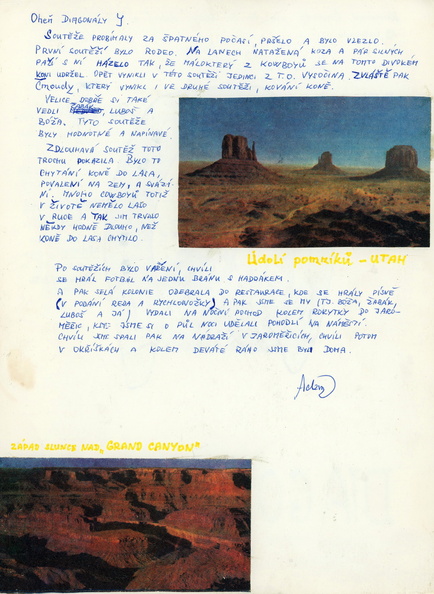 Oheň Diagonály Y.
Soutěže probíhaly za špatného počasí, pršelo a bylo vlezlo.
První soutěží bylo rodeo. Na lanech natažená koza a pár silných
paží s ní házelo tak, že málokterý z kowbojů se na tomto divokém
koni udržel. Opět vynikli v této soutěži jedinci z T.O. Vysočina, zvláště pak
Čmoudy, který vynikl i ve druhé soutěži, kování koně.
Velice dobře si také
vedli Žabák, Luboš a
Boža. Tyto soutěže
byly hodnotné a napínavé.
Zdlouhavá soutěž toto
trochu pokazila. Bylo to
chytání koně do lasa,
povalení na zem, a svázá-
ní. Mnoho cowboyů totiž
v životě nemělo laso
v ruce a tak jim trvalo
někdy hodně dlouho, než
koně do lasa chytilo.
Údolí pomníků - UTAH
Po soutěžích bylo vaření, chvíli
se hrál fotbal na jednu bránu s hadrákem.
A pak celá kolonie odebrala do restaurace, kde se hrály písně
(v podání Reda a Rychlonožky) a pak jsme se my (tj. Boža, Žabák,
Luboš a já) vydali na noční pochod kolem Rokytky do Jaro-
měřic, kde jsme si o půl noci udělali pohodlí na náměstí.
Chvíli jsme spali pak na nádraží v Jaroměřicích, chvíli potom
v Okříškách a kolem deváté ráno jsme byli doma.
Adam
ZÁPAD SLUNCE NAD „GRAND CANYON"